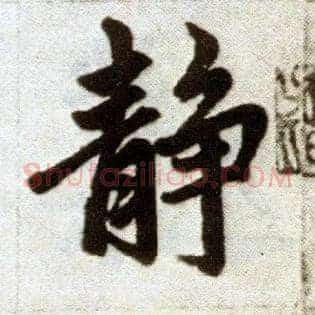 静
Shufaziliao.COM